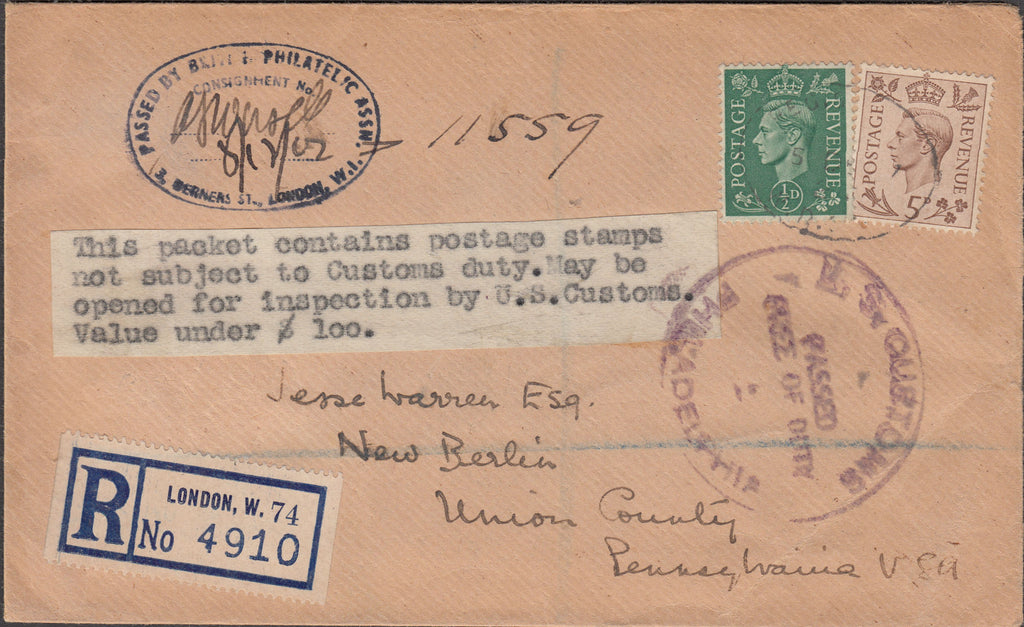 PASSED BY BRIT PHILATELIC ASSN.
CONSIGNMENT No.
3, BERNERS ST., LONDON, W.1.
11559
POSTAGE REVENUE
½D
POSTAGE REVENUE
5D
This packet contains postage stamps
not subject to Customs duty.May be
opened for inspection by U.S.Customs.
Value under $ 100.
U.S. CUSTOMS
PASSED
FREE OF DUTY
PHILADELPHIA
Jesse Warren Esq.
New Berlin
Union County
Pennsylvania USA
R
LONDON, W. 74
No 4910